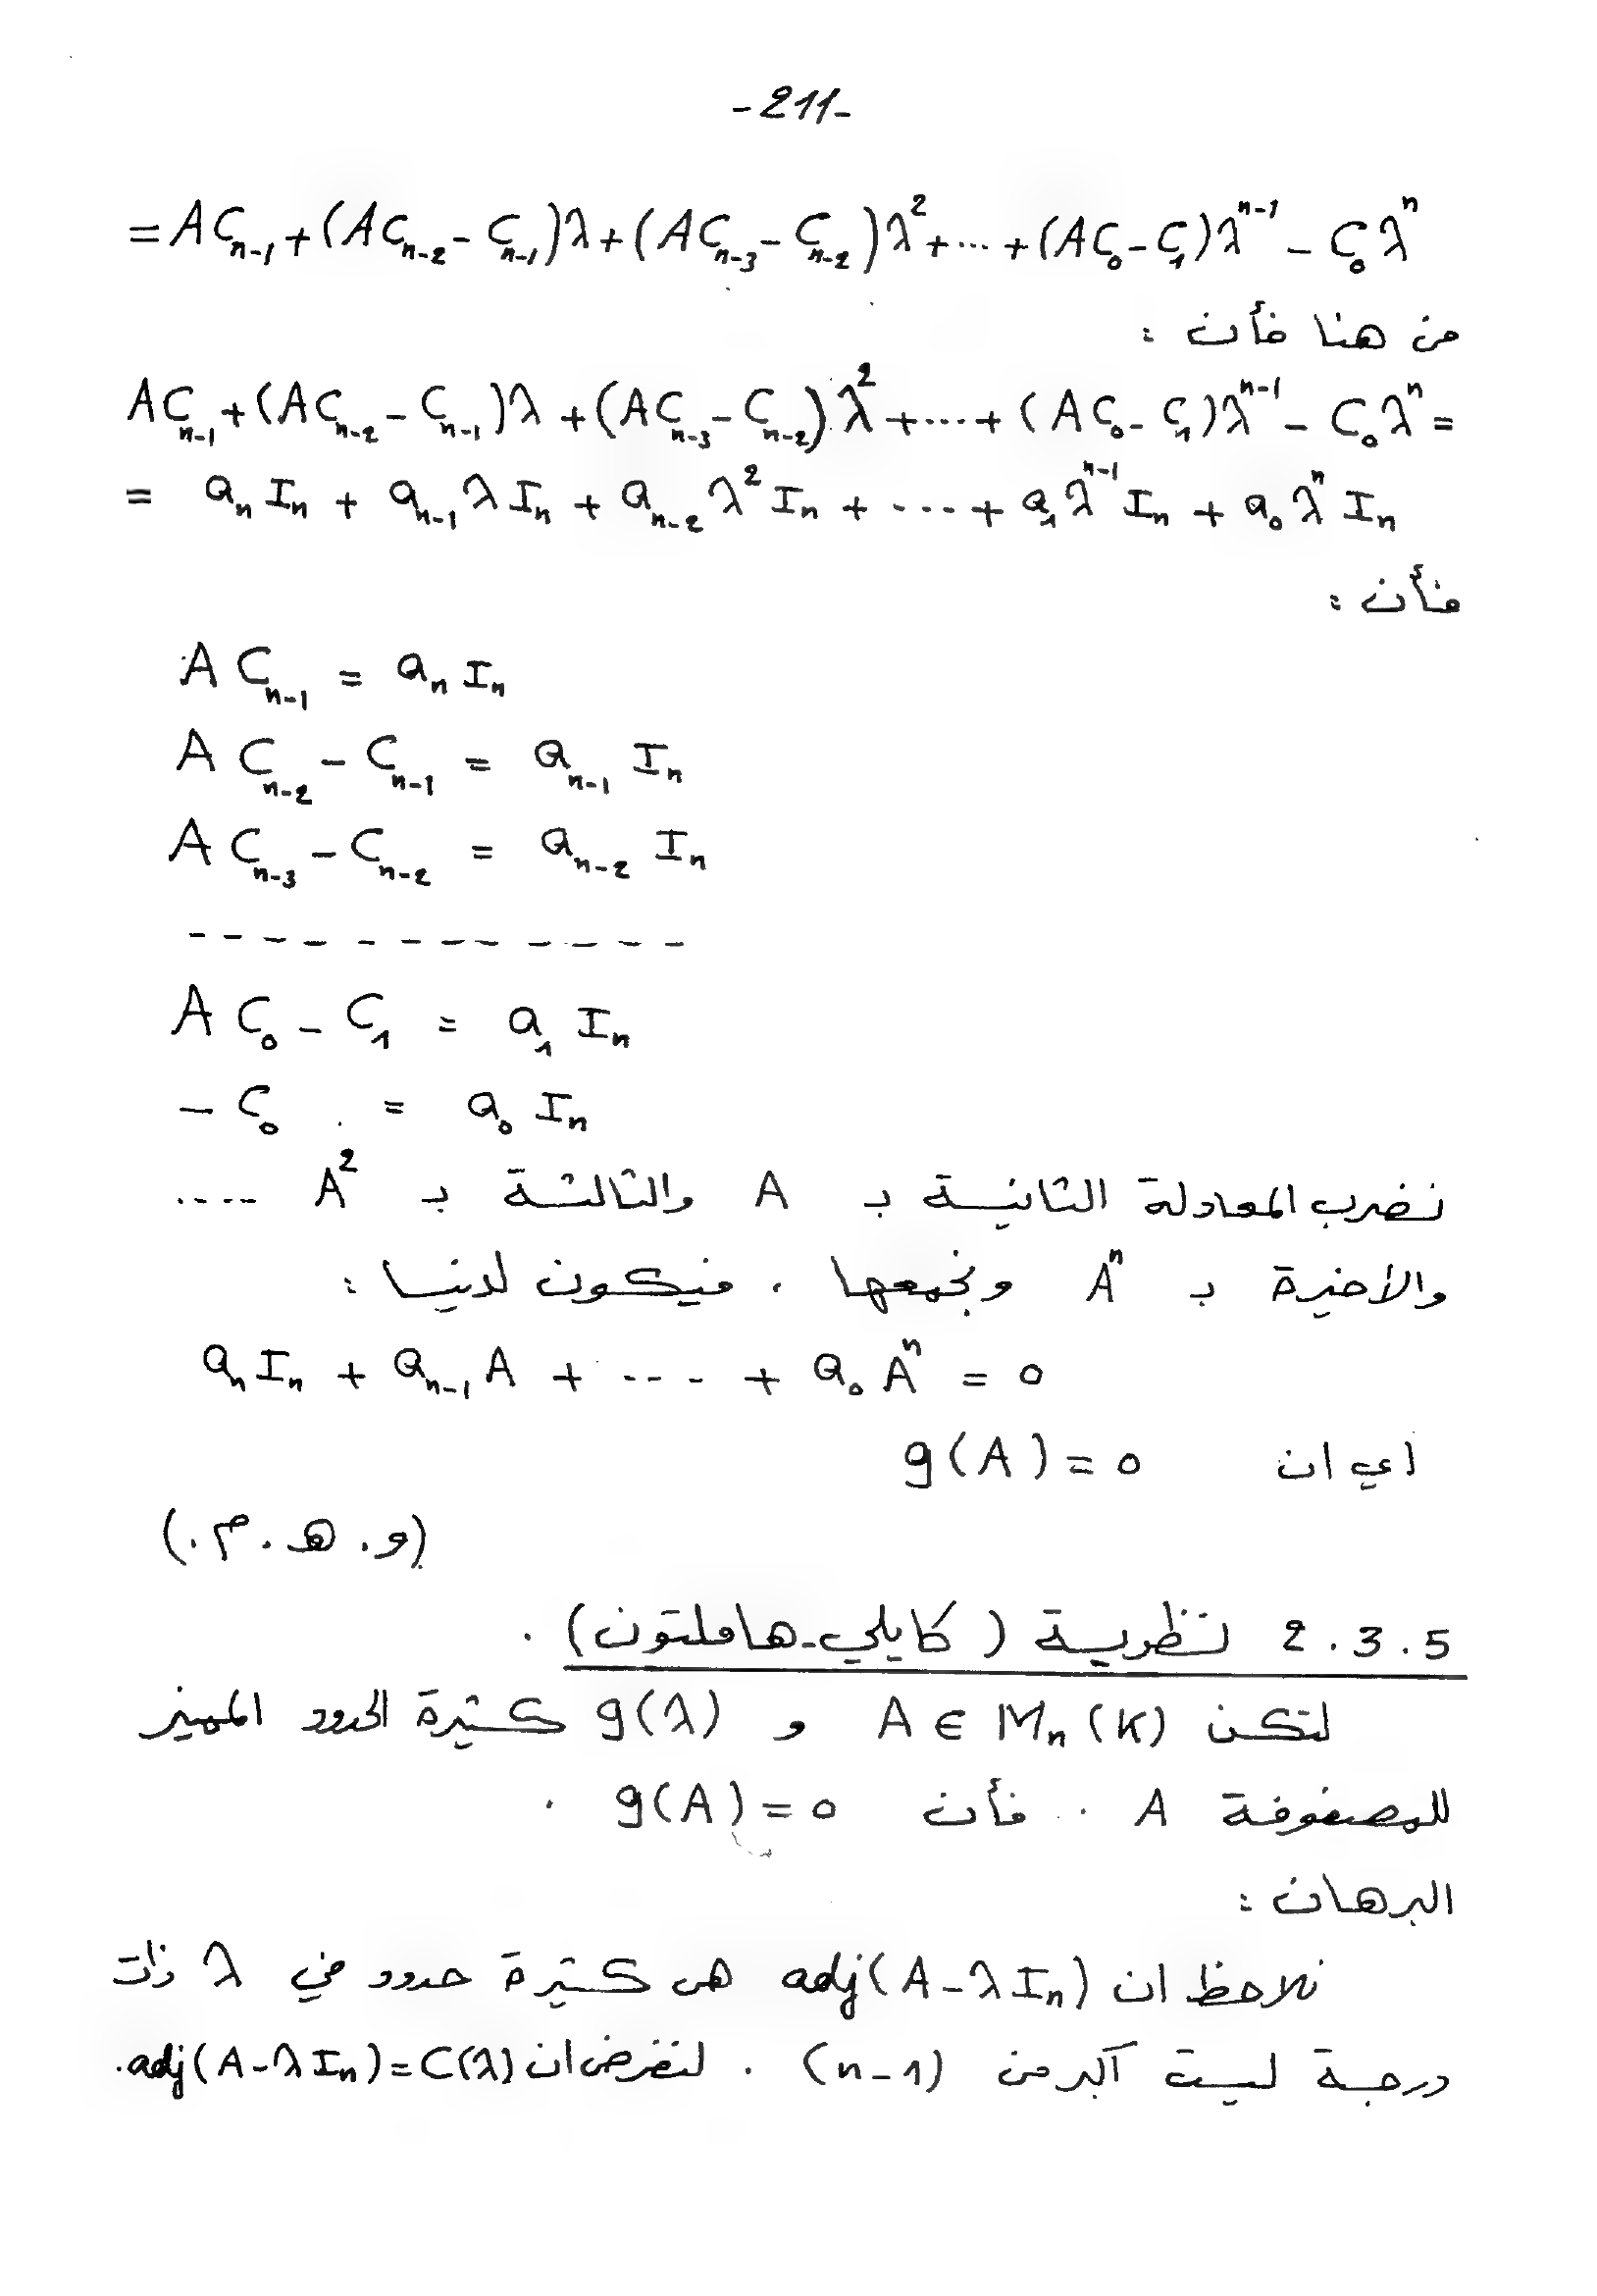 -211-
= AC_{n-1} + (AC_{n-2} - C_{n-1})λ + (AC_{n-3} - C_{n-2})λ^2 + ... + (AC_0 - C_1)λ^{n-1} - C_0 λ^n
من هنا فأن :
AC_{n-1} + (AC_{n-2} - C_{n-1})λ + (AC_{n-3} - C_{n-2})λ^2 + ... + (AC_0 - C_1)λ^{n-1} - C_0 λ^n =
= a_n I_n + a_{n-1} λ I_n + a_{n-2} λ^2 I_n + ... + a_1 λ^{n-1} I_n + a_0 λ^n I_n
فأن :
A C_{n-1} = a_n I_n
A C_{n-2} - C_{n-1} = a_{n-1} I_n
A C_{n-3} - C_{n-2} = a_{n-2} I_n
- - - - - - - - - - - -
A C_0 - C_1 = a_1 I_n
- C_0 = a_0 I_n
نضرب المعادلة الثانية بـ A والثالثة بـ A^2 ....
والأخيرة بـ A^n ونجمعها . فيكون لدينا :
a_n I_n + a_{n-1} A + .... + a_0 A^n = 0
اي ان g(A) = 0
(و. هـ. م.)
2.3.5 نظرية ( كايلي-هاملتون) .
لتكن A ∈ M_n (K) و g(λ) كثيرة الحدود المميز
للمصفوفة A . فأن g(A) = 0 .
البرهان :
نلاحظ ان adj(A - λ I_n) هى كثيرة حدود في λ ذات
درجة ليست أكبر من (n-1) . لنفرض ان adj(A - λ I_n) = C(λ).